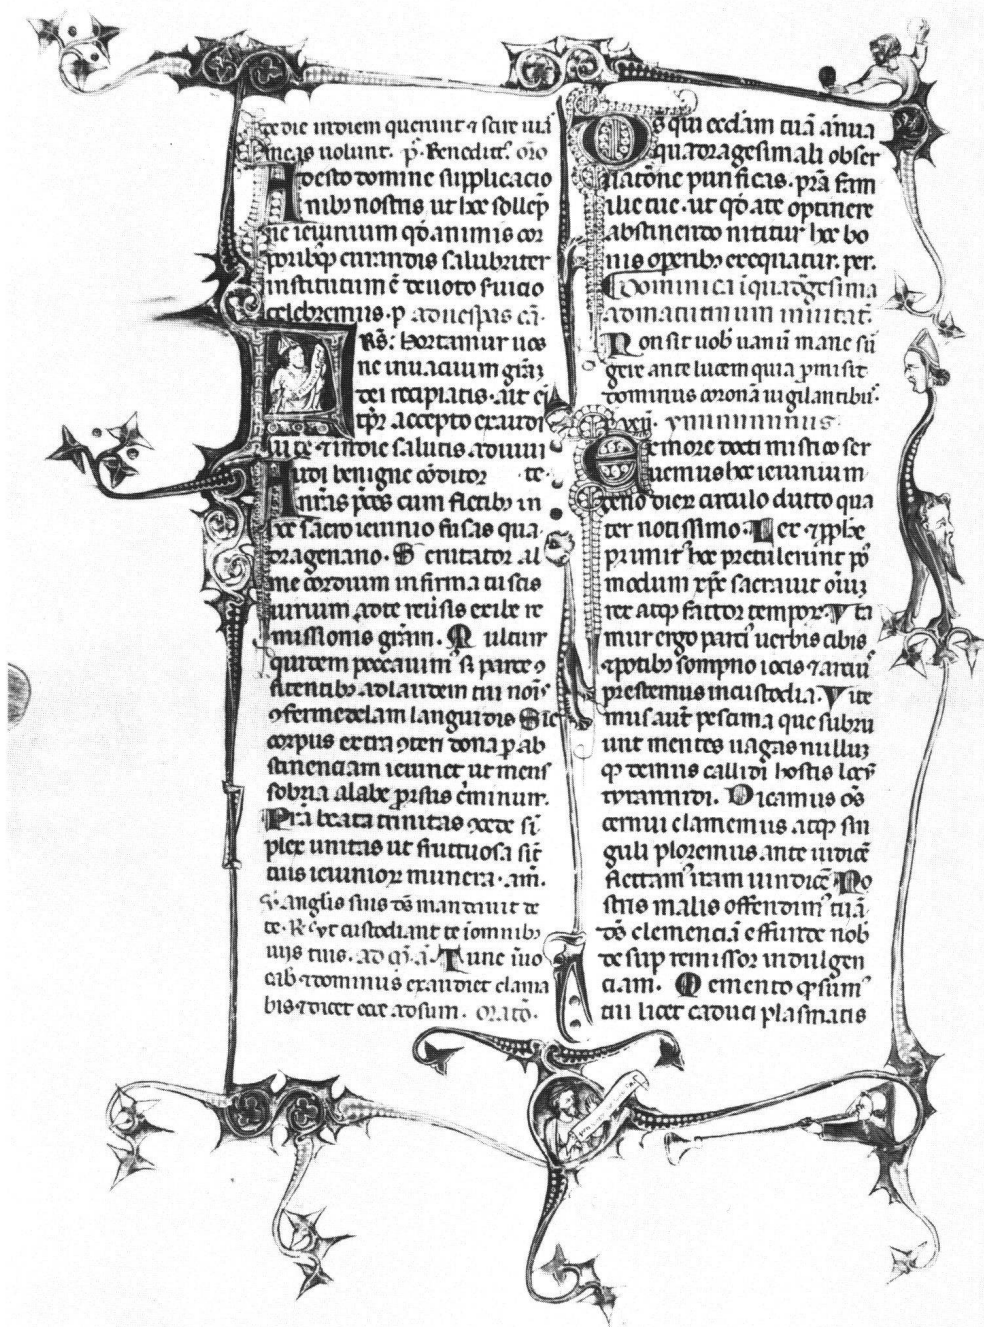 te die in diem querunt ⁊ scire uiā
meas uolunt. p̄. Benedict᷒. oro
Adesto domine supplicacio
nibȝ nostris ut hec sollēp
ne ieiunium qđ animis cor
poribȝqȝ curandis salubriter
institutum ē deuoto ſuicio
celebremus. p ad uesp̄as ca.
RS: hortamur uos
ne in uacuum grām
dei recipiatis. ait eī
tp̄r accepto exaudi
ui te ⁊ in die salutis adiuui
Audi benigne cōditor te.
nr̄as p̄ces cum fletibȝ in
hoc sacro ieiunio fusas qua
dragenario. Scrutator al
me cordium infirma tu scis
uirium ad te reuſis exibe re
missionis grām. Multum
quidem peccauim᷒ ſȝ parce ꝯ
fitentibȝ ad laudem tui noīs
ꝯfer medelam languidis Sic
corpus extra ꝯteri dona p ab
stinenciam ieiunet ut mens
sobria a labe prorsus c̄minum.
Prā beata trinitas ꝯcede sī
plex unitas ut fructuosa sīt
tuis ieiunior munera. am̄.
V̄. anglis suis dō mandauit de
te. R̄ Vt custodiant te ī omnibȝ
uijs tuis. ad m̄ a. Tunc īuo
cab ⁊ dominus exaudiet clama
bis ⁊ dicet ecce adsum. Orato.
Ds̄ qui eccl̄am tuā annua
quadragesimali obser
uatōne purificas. pr̄a fam
ilie tue. ut qđ a te optinere
abstinendo nititur hoc bo
nis operibȝ exequatur. per.
Dominica i quadgesima
ad matutinum inuitat.
Non sit uob̄ uanū mane sū
gere ante lucem quia pmisit
dominus coronā uigilantibȝ.
p̄ xcii. ymnnnnnnus.
Ex more docti mistico ser
uemus hoc ieiunium
deno dierȝ circulo ducto qua
ter notissimo. Lex ⁊ pphe
primit᷒ hoc pretulerunt po᷒
modum xp̄c sacrauit oīuȝ
rex atqȝ factor tempor. Vta
mur ergo parci᷒ uerbis cibis
⁊ potibȝ sompno iocis ⁊ arciu᷒
prestemus in custodia. Vite
mus aut̄ pessima que subru
unt mentes uagas nulluȝ
qȝ demus callidi hostis locū
tyrannidi. Dicamus oēs
cernui clamemus atqȝ sin
guli ploremus ante iudicē
flectam᷒ iram uindicē No
stris malis offendim᷒ tuā
ds̄ clemenciā effunde nob̄
desup remissor indulgen
ciam. Memento qȝ sum᷒
tui licet caduci plasmatis